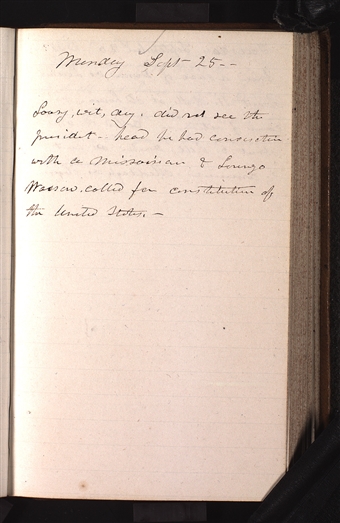 Monday Sept 25 - -
wet, day. did not see the
president - head he had
with a Missourian &
called for constitution of
the United States. -